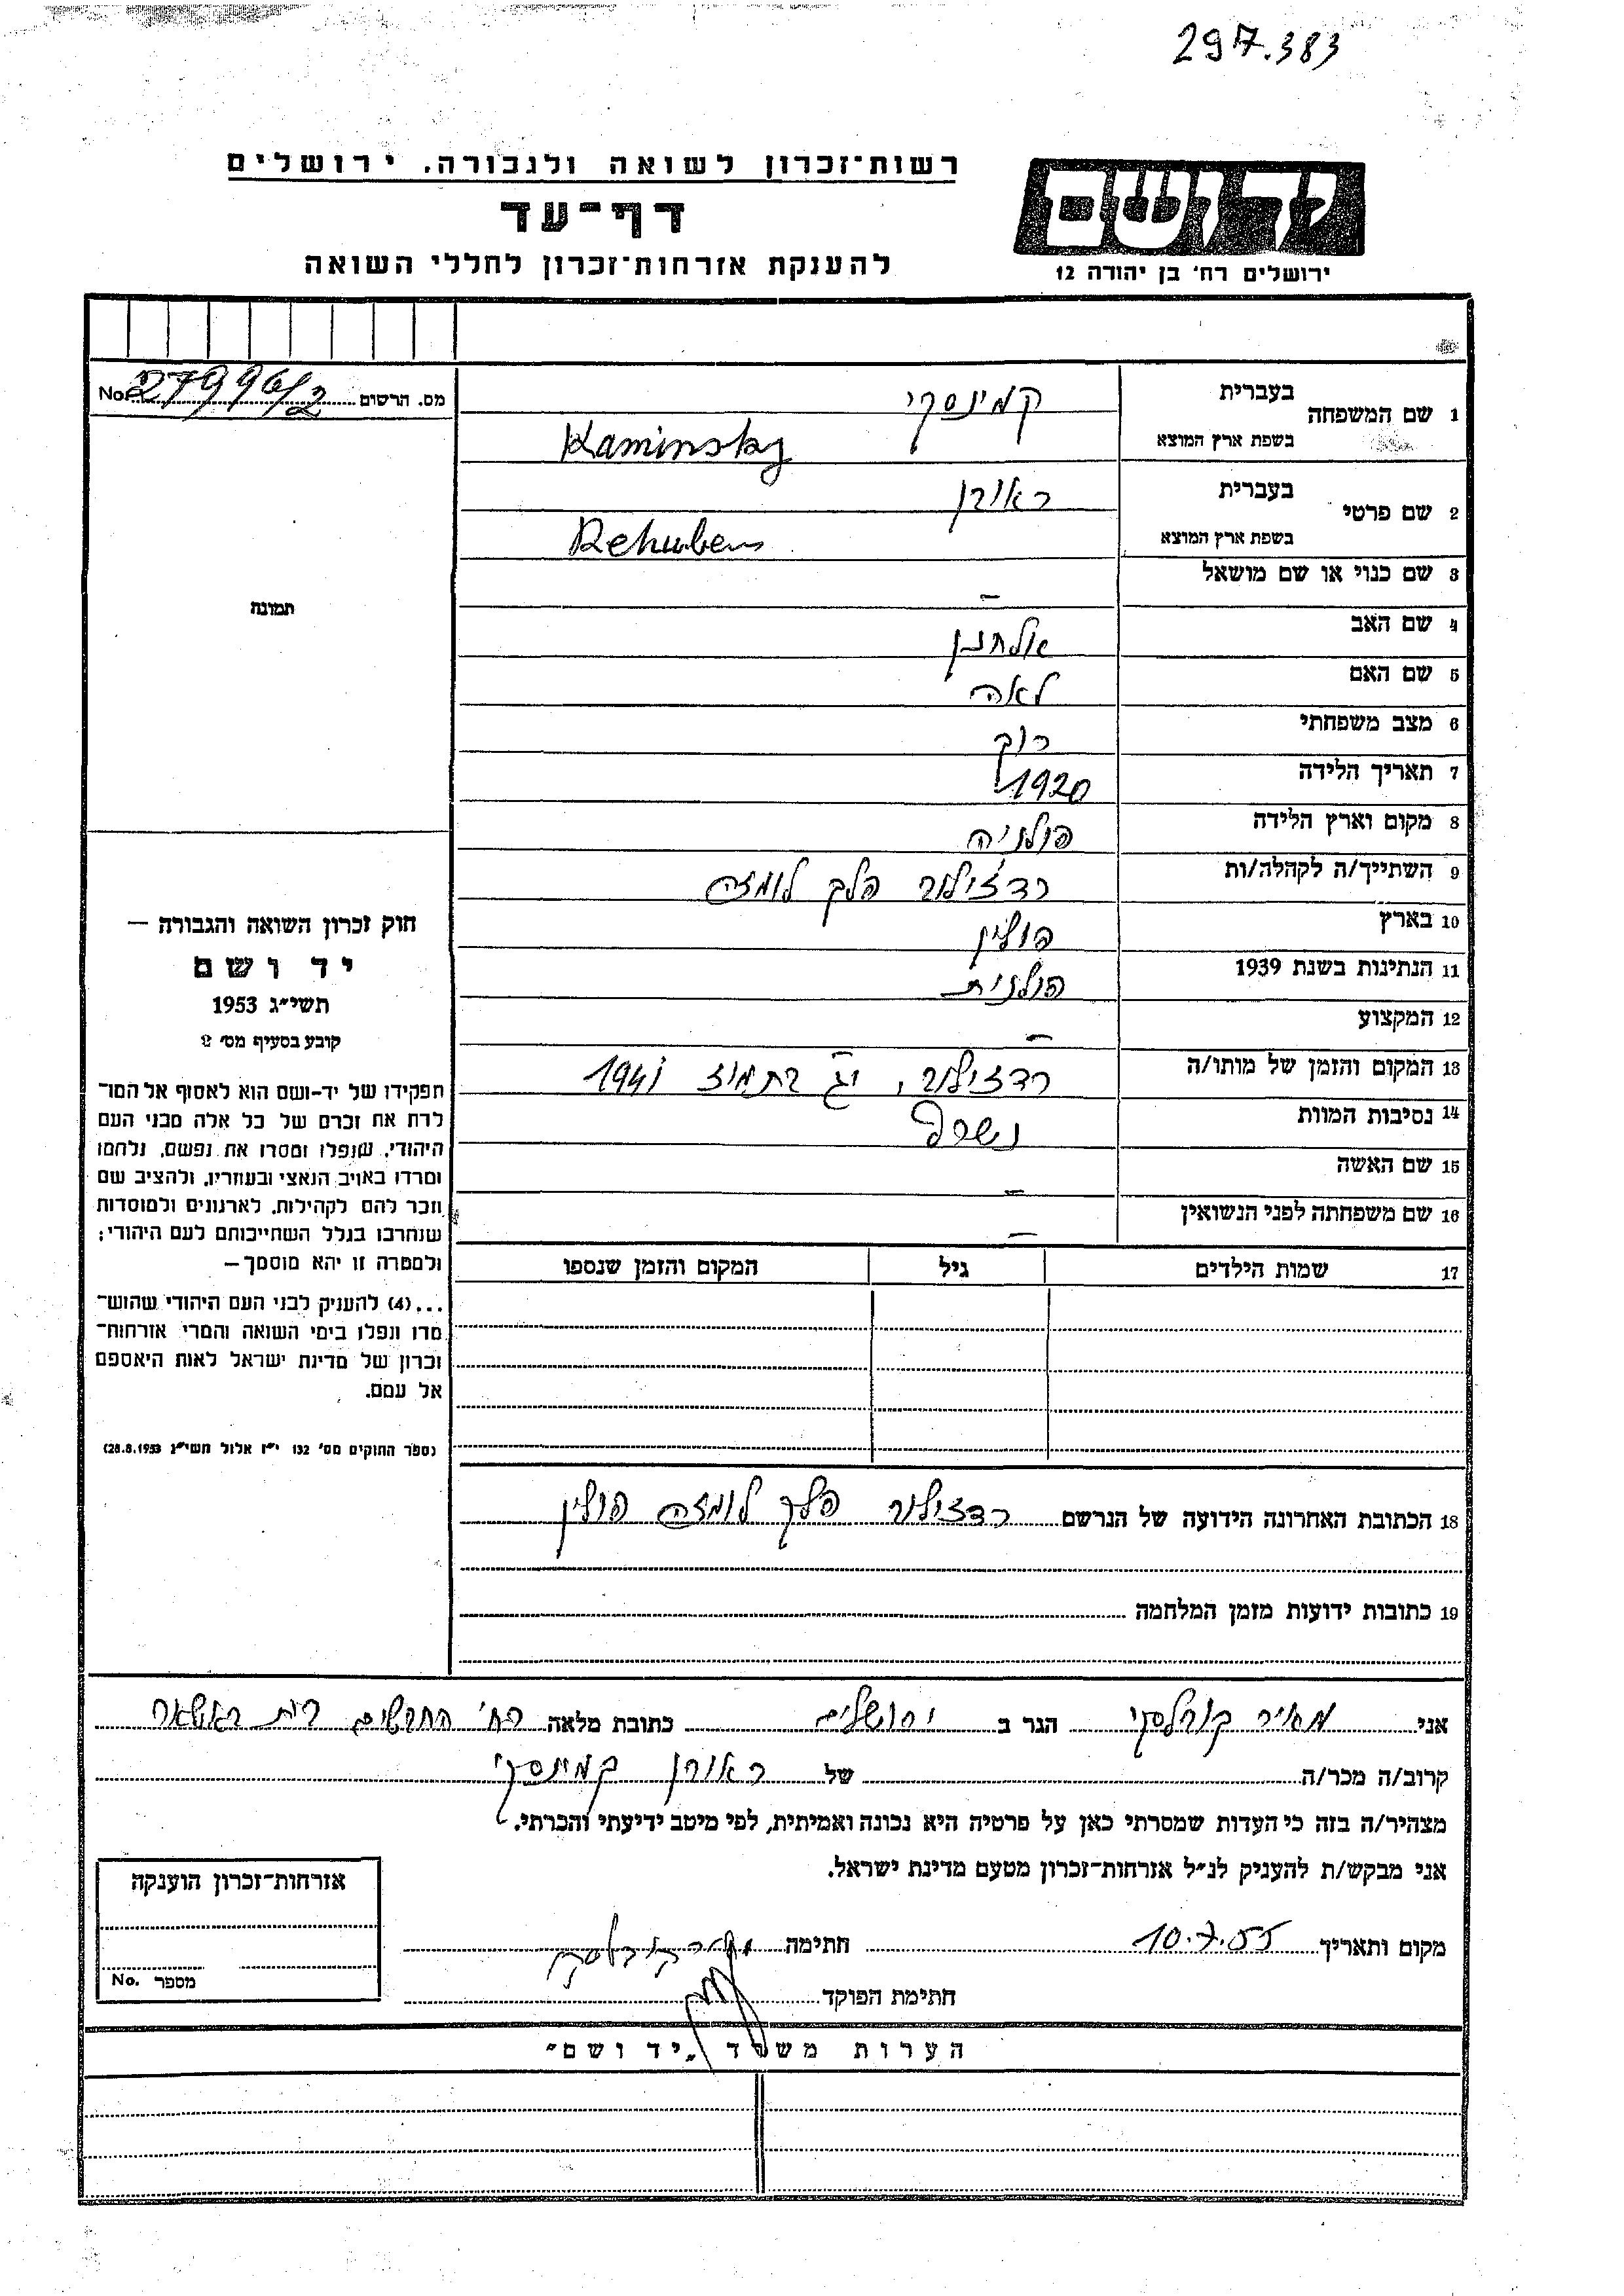 297.383
רשות־זכרון לשואה ולגבורה. ירושלים
יד ושם
דף־עד
להענקת אזרחות־זכרון לחללי השואה
ירושלים רח' בן יהודה 12
מס. הרשום 27996/2 No.
1 שם המשפחה
בעברית קמינסקי
בשפת ארץ המוצא Kaminsky
2 שם פרטי
בעברית ראובן
בשפת ארץ המוצא Rehuben
3 שם כנוי או שם מושאל –
4 שם האב אלחנן
5 שם האם לאה
6 מצב משפחתי רווק
7 תאריך הלידה 1920
8 מקום וארץ הלידה פולניה
9 השתייך/ה לקהלה/ות רדזילוב פלך לומזה
10 בארץ פולין
11 הנתינות בשנת 1939 פולנית
12 המקצוע –
13 המקום והזמן של מותו/ה רדזילוב, יג בתמוז 1941
14 נסיבות המוות נשרף
15 שם האשה –
16 שם משפחתה לפני הנשואין –
17 שמות הילדים גיל המקום והזמן שנספו
תמונה
חוק זכרון השואה והגבורה —
יד ושם
תשי״ג 1953
קובע בסעיף מס' 2
תפקידו של יד־ושם הוא לאסוף אל המו־
לדת את זכרם של כל אלה מבני העם
היהודי, שנפלו ומסרו את נפשם, נלחמו
ומרדו באויב הנאצי ובעוזריו, ולהציב שם
וזכר להם לקהילות, לארגונים ולמוסדות
שנחרבו בגלל השתייכותם לעם היהודי;
ולמטרה זו יהא מוסמך—
...(4) להעניק לבני העם היהודי שהוש־
מדו ונפלו בימי השואה והמרי אזרחות־
זכרון של מדינת ישראל לאות היאספם
אל עמם.
(ספר החוקים מס' 132 י״ז אלול תשי״ג 28.8.1953)
18 הכתובת האחרונה הידועה של הנרשם רדזילוב פלך לומזה פולין
19 כתובות ידועות מזמן המלחמה
אני מאיר קורלסקי הגר ב ירושלים כתובת מלאה רח' החבשים בית
קרוב/ה מכר/ה של ראובן קמינסקי
מצהיר/ה בזה כי העדות שמסרתי כאן על פרטיה היא נכונה ואמיתית, לפי מיטב ידיעתי והכרתי.
אני מבקש/ת להעניק לנ״ל אזרחות־זכרון מטעם מדינת ישראל.
מקום ותאריך 10.7.55 חתימה מאיר קורלסקי
חתימת הפוקד
אזרחות־זכרון הוענקה
מספר No.
הערות משרד „יד ושם״